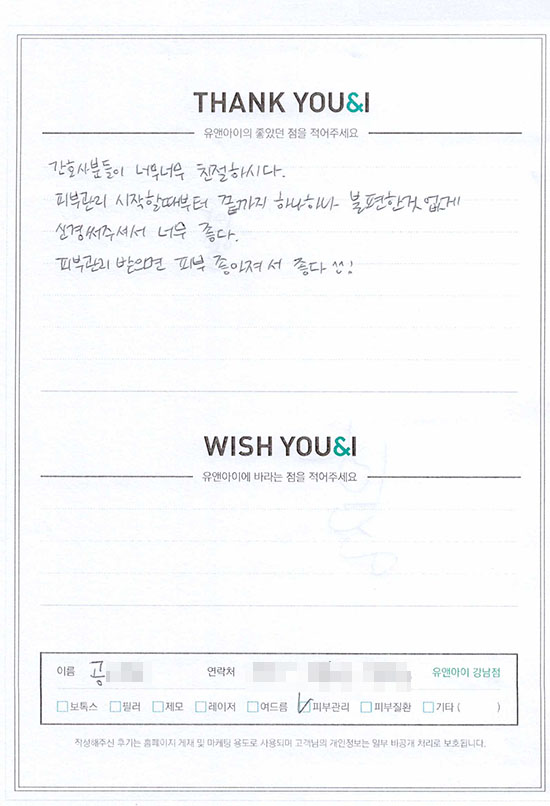 THANK YOU&I
유앤아이의 좋았던 점을 적어주세요
간호사분들이 너무너무 친절하시다.
피부관리 시작할때부터 끝까지 하나하나 불편한것 없게
신경써주셔서 너무 좋다.
피부관리 받으면 피부 좋아져서 좋다 ^^!
WISH YOU&I
유앤아이에 바라는 점을 적어주세요
이름 공 연락처 유앤아이 강남점
보톡스 필러 제모 레이저 여드름 피부관리 피부질환 기타 ( )
작성해주신 후기는 홈페이지 게재 및 마케팅 용도로 사용되며 고객님의 개인정보는 일부 비공개 처리로 보호됩니다.